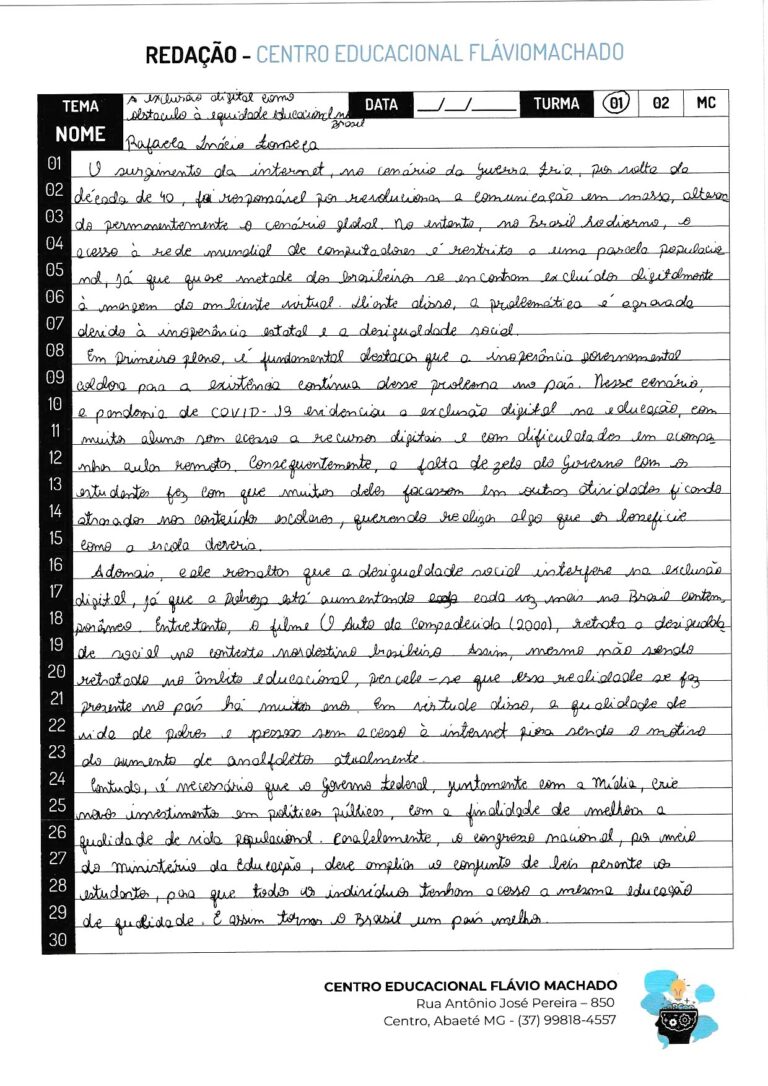 REDAÇÃO - CENTRO EDUCACIONAL FLÁVIOMACHADO
TEMA A exclusão digital como obstáculo à equidade educacional no Brasil DATA __/__/____ TURMA 01 02 MC
NOME Rafaela Inácio Fonseca
01 O surgimento da internet, no cenário da Guerra Fria, por volta da
02 década de 40, foi responsável por revolucionar a comunicação em massa, alteran
03 do permanentemente o cenário global. No entanto, no Brasil hodierno, o
04 acesso à rede mundial de computadores é restrito a uma parcela populacio
05 nal, já que quase metade dos brasileiros se encontram excluídos digitalmente
06 à margem do ambiente virtual. Diante disso, a problemática é agravada
07 devido à inoperância estatal e a desigualdade social.
08 Em primeiro plano, é fundamental destacar que a inoperância governamental
09 coldora para a existência contínua desse problema no país. Nesse cenário,
10 a pandemia de COVID-19 evidenciou a exclusão digital na educação, com
11 muitos alunos sem acesso a recursos digitais e com dificuldades em acompa
12 nhar aulas remotas. Consequentemente, a falta de zelo do Governo com os
13 estudantes fez com que muitos deles focassem em outras atividades ficando
14 atrasados nos conteúdos escolares, querendo realizar algo que os beneficie
15 como a escola deveria.
16 Ademais, cale ressaltar que a desigualdade social interfere na exclusão
17 digital, já que a pobreza está aumentando cada vez mais no Brasil contem
18 porâneo. Entretanto, o filme O Auto da Compadecida (2000), retrata a desigualda
19 de social no contexto nordestino brasileiro. Assim, mesmo não sendo
20 retratado no âmbito educacional, percebe-se que essa realidade se faz
21 presente no país há muitos anos. Em virtude disso, a qualidade de
22 vida de pobres e pessoas sem acesso à internet piora sendo o motivo
23 do aumento de analfabetos atualmente.
24 Contudo, é necessário que o Governo Federal, juntamente com a Mídia, crie
25 novos investimentos em políticas públicas, com a finalidade de melhorar a
26 qualidade de vida populacional. Paralelamente, o congresso nacional, por meio
27 do Ministério da Educação, deve ampliar o conjunto de leis perante os
28 estudantes, para que todos os indivíduos tenham acesso a mesma educação
29 de qualidade. E assim tornar o Brasil um país melhor.
30
CENTRO EDUCACIONAL FLÁVIO MACHADO
Rua Antônio José Pereira – 850
Centro, Abaeté MG - (37) 99818-4557